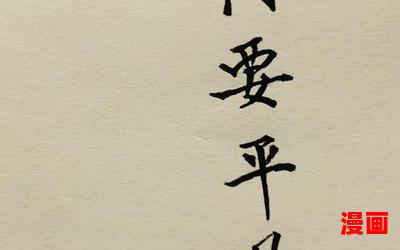 要平
漫画